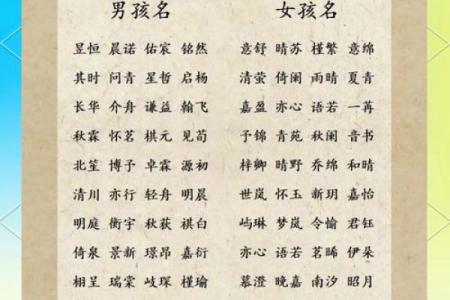 男孩名 女孩名
昱恒 晨诺 佑宸 铭然 意舒 晴苏 槿繁 意绵
其时 问青 星哲 启杨 清萤 倚阑 雨晴 夏青
长华 介舟 谦益 翰飞 嘉盈 亦心 语若 一苒
秋霖 怀茗 棋元 见荀 予锦 青苑 秋阑 音书
北笙 博予 卓霖 源初 梓卿 晴野 乔绵 和晴
清川 亦行 轻舟 明晨 世岚 怀玉 新玥 嘉怡
明庭 衡宇 秋荻 祺白 屿琳 梦岚 令愉 君钰
倚泉 景新 璟昂 嘉衍 亦心 语若 茗晞 伊朵
相呈 瑞棠 岐琛 槿瑜 慕澄 晚嘉 南汐 昭月